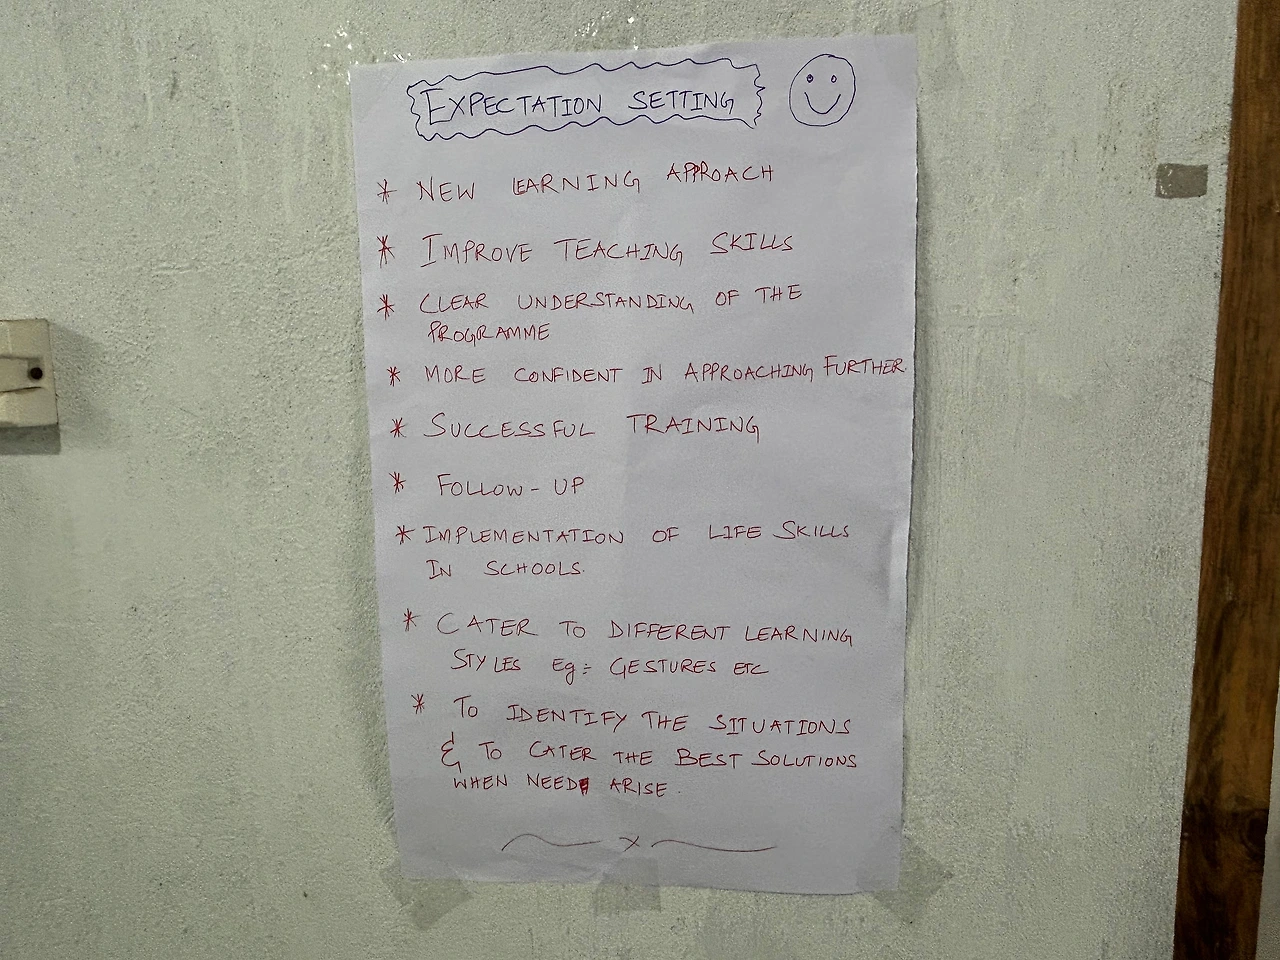 EXPECTATION SETTING
* NEW LEARNING APPROACH
* IMPROVE TEACHING SKILLS
* CLEAR UNDERSTANDING OF THE
PROGRAMME
* MORE CONFIDENT IN APPROACHING FURTHER.
* SUCCESSFUL TRAINING
* FOLLOW-UP
* IMPLEMENTATION OF LIFE SKILLS
IN SCHOOLS.
* CATER TO DIFFERENT LEARNING
STYLES Eg:- GESTURES ETC
* TO IDENTIFY THE SITUATIONS
& TO CATER THE BEST SOLUTIONS
WHEN NEED ARISE.
x